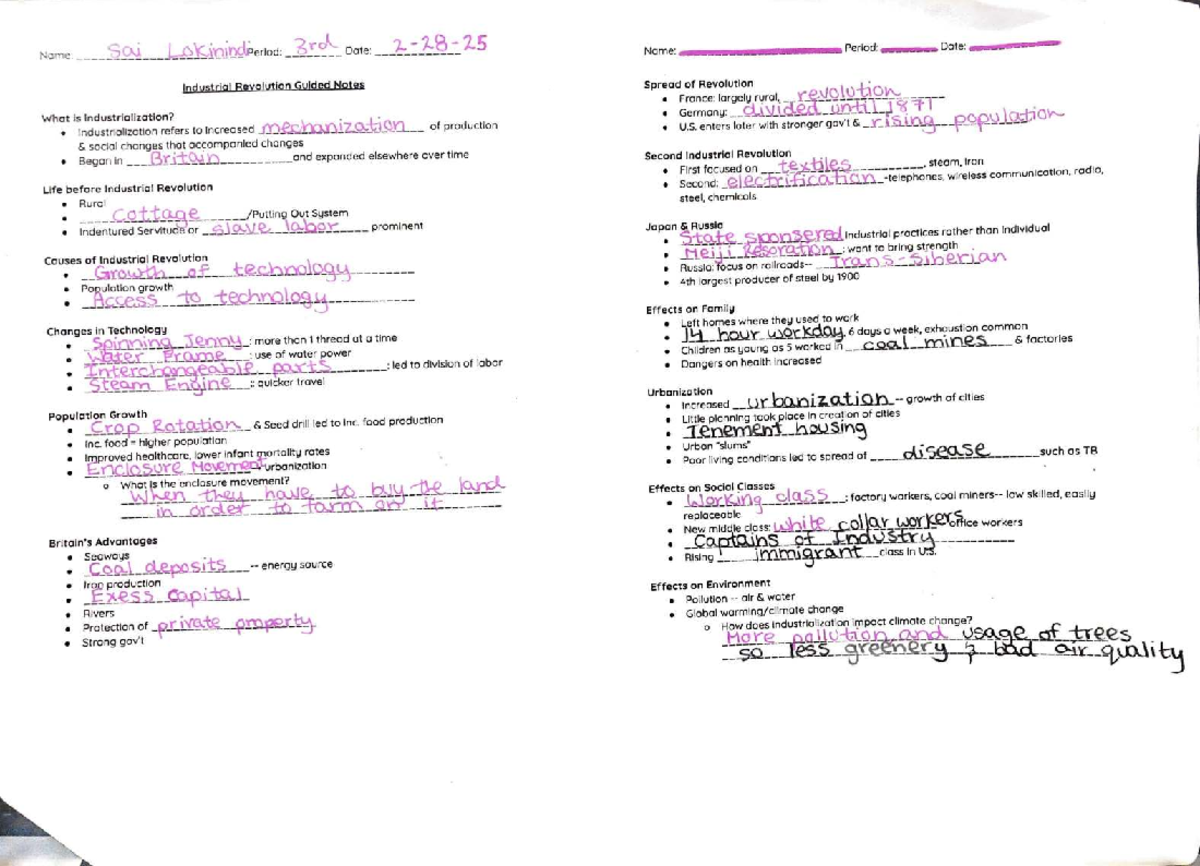 Name: Sai Lokinindi Period: 3rd Date: 2-28-25
Industrial Revolution Guided Notes
What is Industrialization?
• Industrialization refers to increased mechanization of production
& social changes that accompanied changes
• Began in Britain and expanded elsewhere over time
Life before Industrial Revolution
• Rural
• Cottage /Putting Out System
• Indentured Servitude or slave labor prominent
Causes of Industrial Revolution
• Growth of technology
• Population growth
• Access to technology
Changes in Technology
• Spinning Jenny : more than 1 thread at a time
• Water Frame : use of water power
• Interchangeable parts : led to division of labor
• Steam Engine : quicker travel
Population Growth
• Crop Rotation & Seed drill led to inc. food production
• Inc. food = higher population
• Improved healthcare, lower infant mortality rates
• Enclosure Movement urbanization
o What is the enclosure movement?
When they have to buy the land
in order to farm on it
Britain's Advantages
• Seaways
• Coal deposits -- energy source
• Iron production
• Exess capital
• Rivers
• Protection of private property
• Strong gov't
Name: Period: Date:
Spread of Revolution
• France: largely rural, revolution
• Germany: divided until 1871
• U.S. enters later with stronger gov't & rising population
Second Industrial Revolution
• First focused on textiles, steam, iron
• Second: electrification -telephones, wireless communication, radio,
steel, chemicals
Japan & Russia
• State sponsered industrial practices rather than individual
• Meiji Resoration : want to bring strength
• Russia: focus on railroads-- Trans-Siberian
• 4th largest producer of steel by 1900
Effects on Family
• Left homes where they used to work
• 14 hour workday, 6 days a week, exhaustion common
• Children as young as 5 worked in coal mines & factories
• Dangers on health increased
Urbanization
• Increased urbanization -- growth of cities
• Little planning took place in creation of cities
• Tenement housing
• Urban "slums"
• Poor living conditions led to spread of disease such as TB
Effects on Social Classes
• Working class : factory workers, coal miners-- low skilled, easily
replaceable
• New middle class: white collar workers office workers
• Captains of Industry
• Rising immigrant class in U.S.
Effects on Environment
• Pollution -- air & water
• Global warming/climate change
o How does industrialization impact climate change?
More pollution and usage of trees
so less greenery & bad air quality